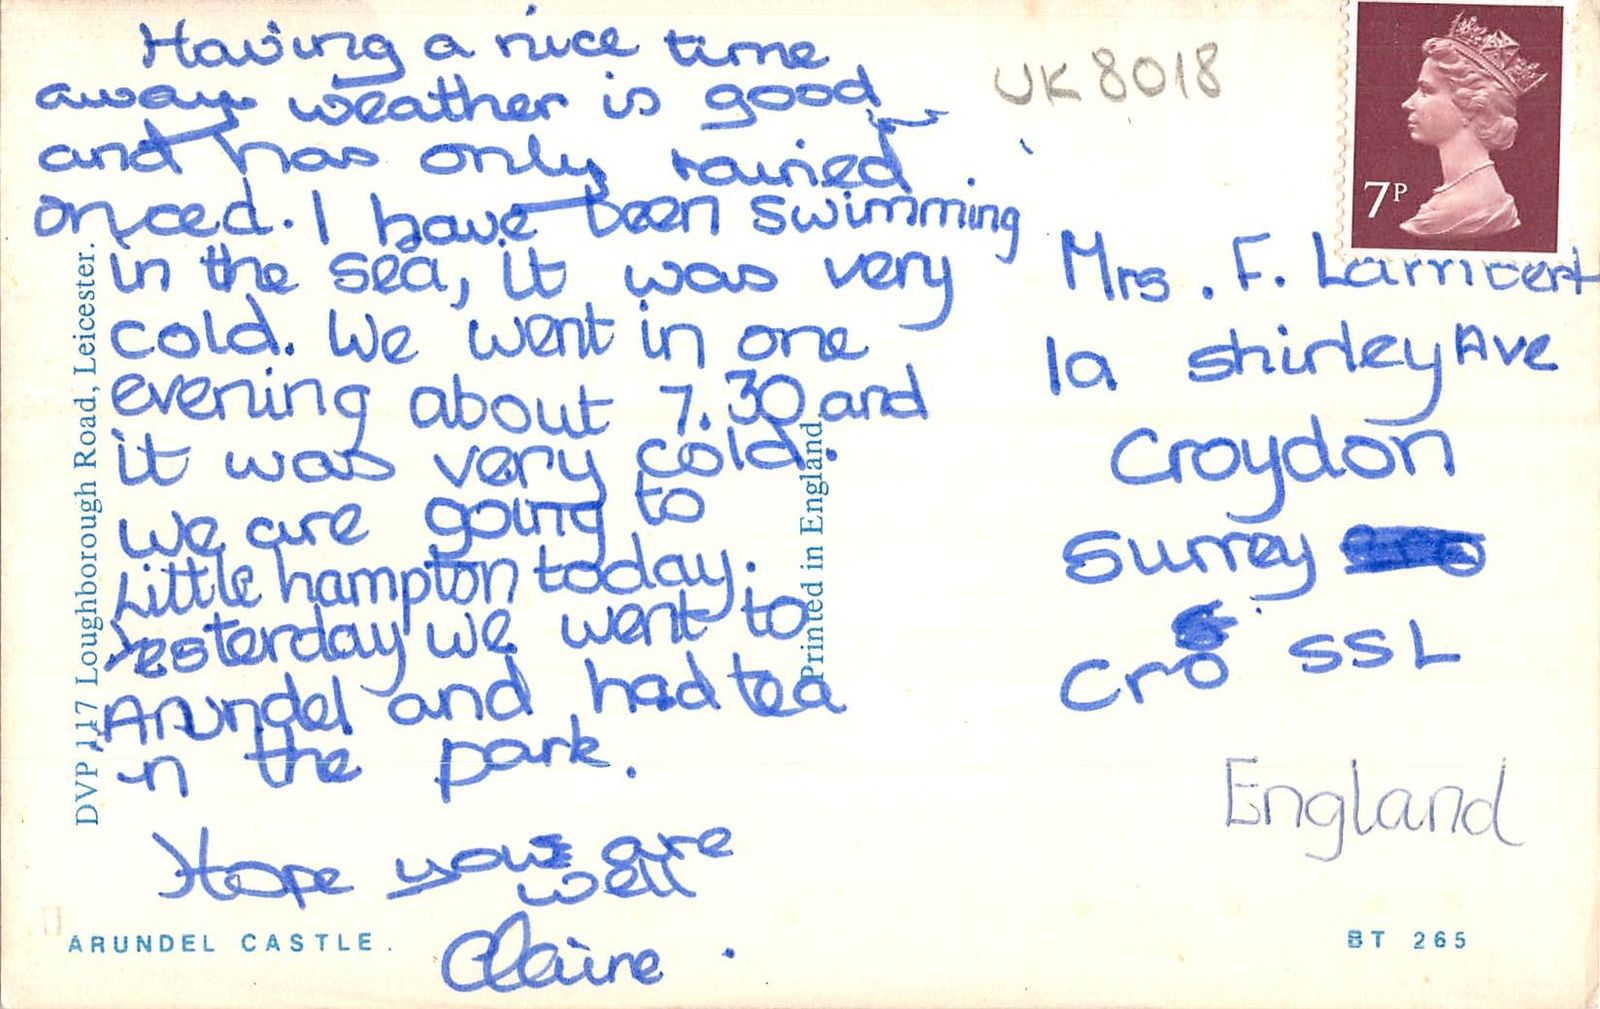 Having a nice time
away weather is good
and has only rained
onced. I have been swimming
in the sea, it was very
cold. We went in one
evening about 7.30 and
it was very cold.
we are going to
Little hampton today.
Yesterday we went to
Arundel and had tea
in the park.
Hope you are
well
Claire
UK 8018
7P
Mrs. F. Lambert
1a Shirley Ave
Croydon
Surrey
Cro SSL
England
DVP 117 Loughborough Road, Leicester.
Printed in England
ARUNDEL CASTLE.
BT 265